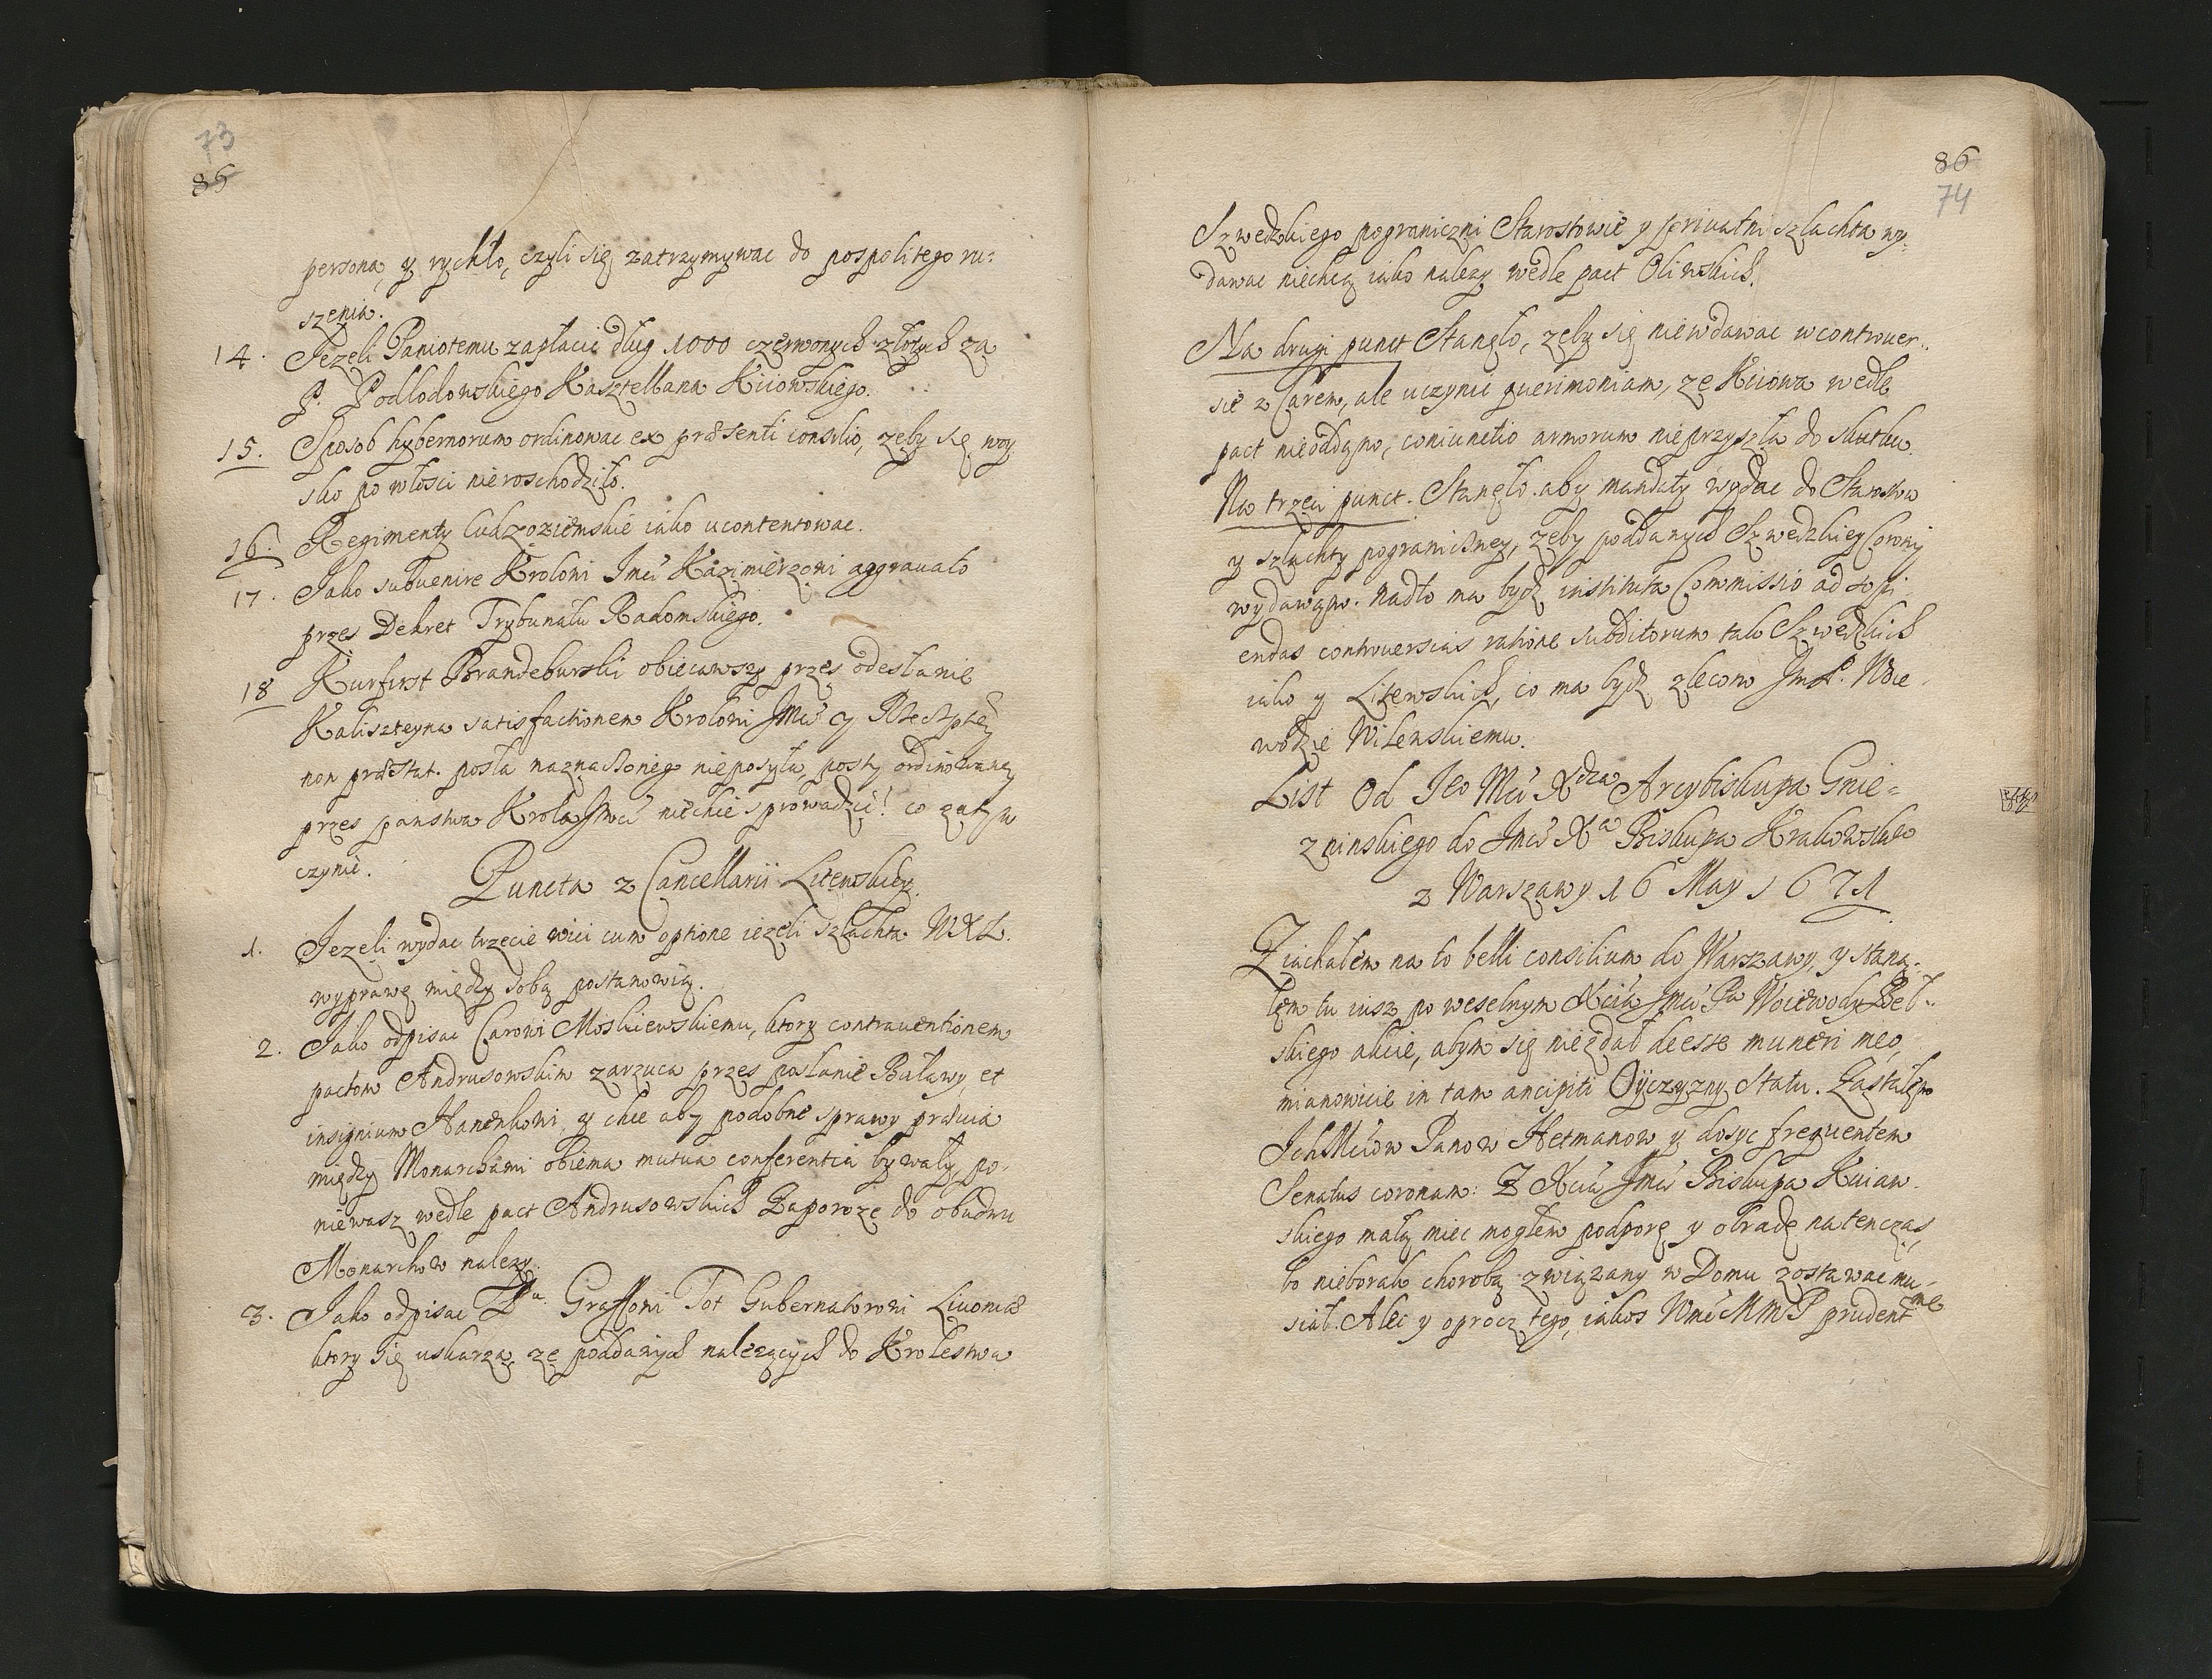 73
86
persona, y rychło, czyli się zatrzymywac do pospolitego ru=
szenia.
14. Jezeli Paniotemu zapłacic dług 1000 czerwonych złotych za
P. Podlodowskiego Kasztellana Kiiowskiego.
15. Sposob hybernorum ordinowac ex præsenti consilio, zeby się woy
sko po włosci nieroschodziło.
16. Regimenty Cudzoziemskie iako ucontentowac.
17. Jako subuenire Krolowi Jmci Kazimierzowi aggrauato
przes Dekret Trybunału Radomskiego.
18 Kurfirst Brandeburski obiecawszy przes odesłanie
Kaliszteyna satisfactionem Krolowi Jmci y Rzeczypltey
non præstat. posła naznaczonego nieposyła, posty ordinowaney
przes panstwa Krola Jmci niechce sprowadzic! co z tym
czynic.
Puncta z Cancellarii Litewskiey.
1. Jezeli wydac trzecie wici cum optione iezeli szlachta WXL.
wyprawę między sobą postanowią.
2. Jako odpisac Carowi Moskiewskiemu, ktory contrauentionem
pactom Andrusowskim zarzuca przes posłanie Buławy, et
insignium Hanenkowi, y chce aby podobne sprawy præuia
między Monarchami obiema mutua conferentia bywały, po-
niewasz wedle pact Andrusowskich Zaporoze do obudwu
Monarchow nalezy.
3. Jako odpisac Graffowi Tot Gubernatorowi Liuoniæ
ktory się uskarza, ze poddanych nalezących do Krolestwa
86
74
Szwedzkiego pograniczni Starostowie y priuatni szlachta wy-
dawac niechcą iako nalezy wedle pact Oliwskich.
Na drugi punct Stanęło, zeby się niewdawac w controuer-
sie z Carem, ale uczynic querimoniam, ze Kiiowa wedle
pact nieoddano, coniunctio armorum nieprzyszła do skutku.
Na trzeci punct. Stanęło. aby mandaty wydac do Starostw
y szlachty pograniczney, zeby poddanych Szwedzkiey Corony
wydawano. nadto ma bydz instituta Commissio ad sopi
endas controuersias ratione subditorum tako Szwedzkich
iako y Litewskich, co ma bydz zlecono JmP. Woie
wodzie Wilenskiemu.
List Od Jeo Mci Xdza Arcybiskupa Gnie=
zninskiego do Jmci Xa Biskupa Krakowskieo
z Warszawy 16 May 1671
Ziachałem na to belli consilium do Warszawy, y staną-
łem tu iusz po weselnym Xcia Jmci Pa Woiewody Bel-
skiego akcie, abym się niezdał deesse muneri meo,
mianowicie in tam ancipiti Oyczyzny statu. Zastałem
Ich Mciow Panow Hetmanow y dosyc frequentem
Senatus coronam: Z Xcia Jmci Biskupa Kuiaw-
skiego małą miec mogłem podporę y obradę natenczas,
bo nieborak chorobą związany w Domu zostawac mu-
siał. Alec y oprocz tego, iakos WmcMmP prudentme